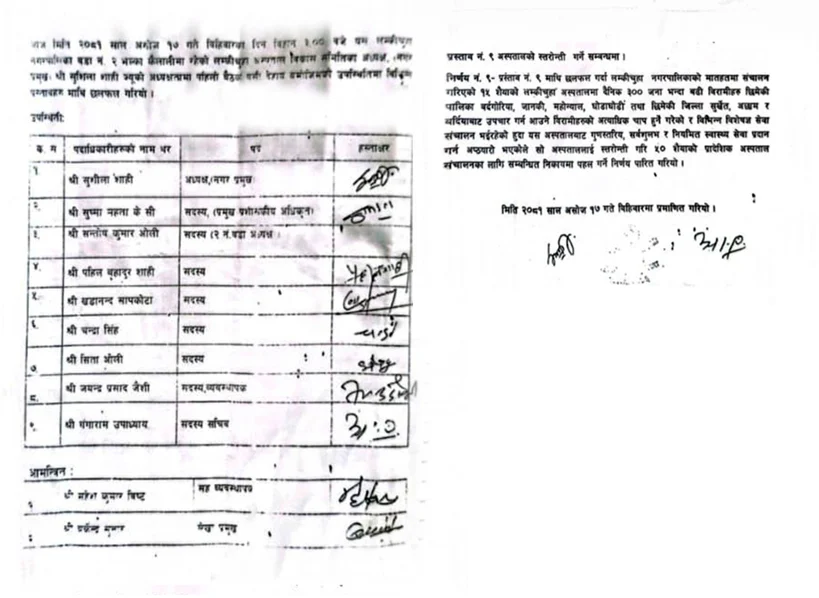 मिति २०८१ साल असोज १७ गते विहिवारका दिन विहान बजे यस लम्कीचुहा
नगरपालिका वडा नं. २ कैलालीमा रहेको लम्कीचुहा अस्पताल विकास समितिका अध्यक्ष, नगर
प्रमुख श्री सुशिला शाही ज्यूको अध्यक्षतामा पहिलो बैठक बसी उपस्थितिमा
प्रस्तावहरु माथि छलफल गरियो ।
उपस्थिती:
पदाधिकारीहरुको नाम थर पद हस्ताक्षर
श्री सुशीला शाही अध्यक्ष,(नगर प्रमुख)
२. श्री सुष्मा महता के सी सदस्य, (प्रमुख प्रशासकीय अधिकृत)
३. श्री सन्तोष कुमार ओली सदस्य (२ नं.वडा अध्यक्ष)
४. श्री पहिल बहादुर शाही सदस्य
५. श्री खडानन्द सापकोटा सदस्य
६. श्री चन्द्रा सिंह सदस्य
७. श्री सिता ओली सदस्य
८. श्री जयन्द्र प्रसाद जैशी सदस्य,व्यवस्थापक
श्री गंगाराम उपाध्याय सदस्य सचिव
आमन्त्रित :
श्री कुमार विष्ट सह व्यवस्थापक
श्री प्रमुख
प्रस्ताव नं. ९ अस्पतालको स्तरोन्ती गर्ने सम्बन्धमा।
निर्णय नं. ९- प्रस्ताव नं. ९ माथि छलफल गर्दा लम्कीचुहा नगरपालिकाको मातहतमा संचालन
गरिएको १५ शैयाको लम्कीचुहा अस्पतालमा दैनिक ३०० जना भन्दा बढी विरामीहरु छिमेकी
पालिका बर्दगोरिया, जानकी, मोहन्याल, घोडाघोडी तथा छिमेकी जिल्ला सुर्खेत, अछाम र
बर्दियाबाट उपचार गर्न आउने विरामीहरुको अत्याधिक चाप हुने गरेको र विभिन्न विशेषज्ञ सेवा
संचालन भईरहेको हुदा यस अस्पतालबाट गुणस्तरिय, सर्वसुलभ र नियमित स्वास्थ्य सेवा प्रदान
गर्न अप्ठयारो भएकोले सो अस्पताललाई स्तरोन्ती गरि ५० शैयाको प्रादेशिक अस्पताल
संचालनका लागि सम्बन्धित निकायमा पहल गर्ने निर्णय पारित गरियो ।
मिति २०८१ साल असोज १७ गते विहिवारमा प्रमाणित गरियो ।